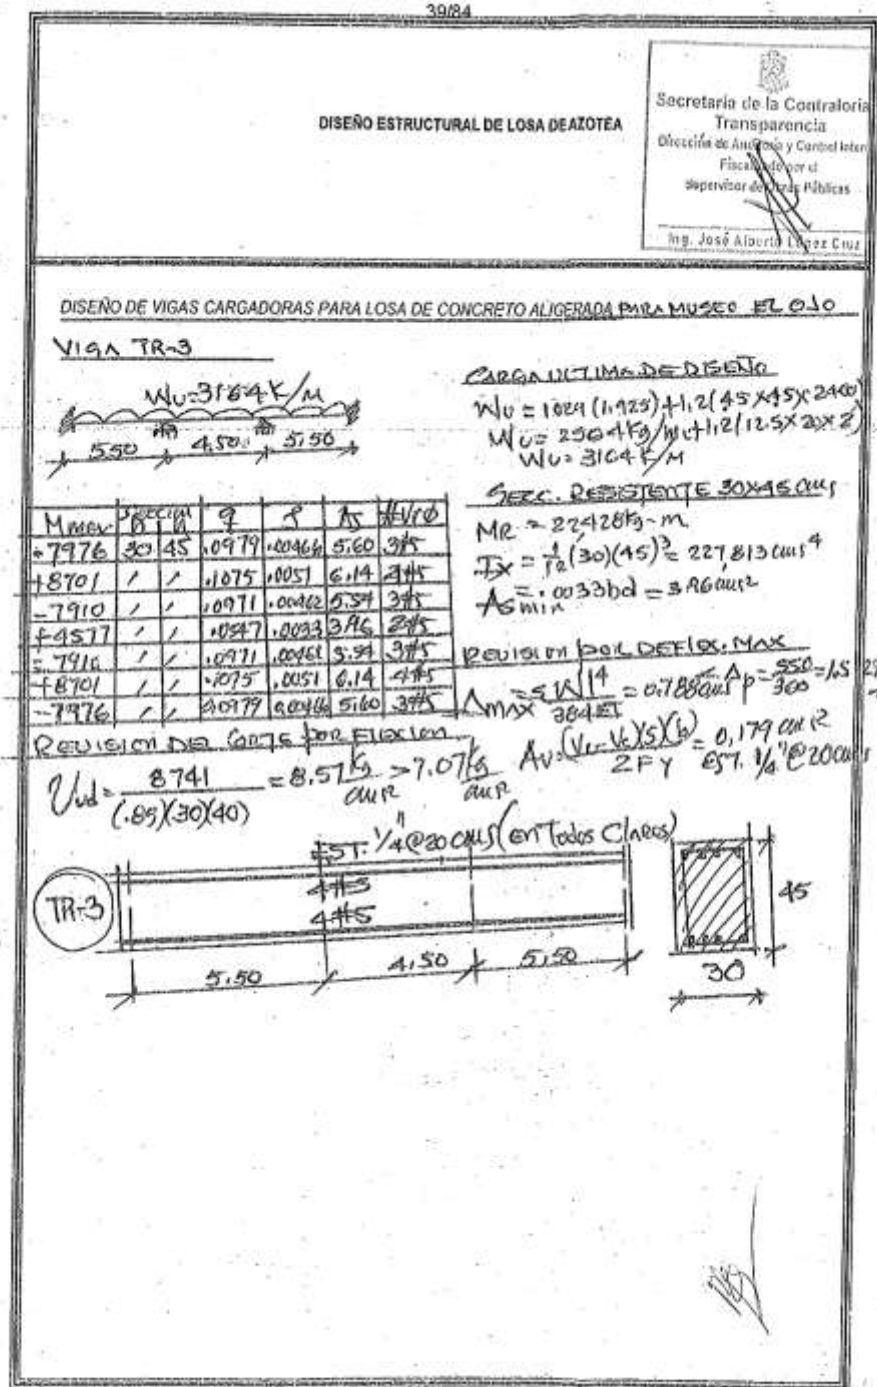 39/84
DISEÑO ESTRUCTURAL DE LOSA DE AZOTEA
Secretaría de la Contraloría
Transparencia
Dirección de Auditoría y Control Inter
Fiscalizado por el
Supervisor de Obras Públicas
Ing. José Alberto López Cruz
DISEÑO DE VIGAS CARGADORAS PARA LOSA DE CONCRETO ALIGERADA PARA MUSEO EL OJO
VIGA TR-3
WU=3164 K/M
5.50 4.50 5.50
CARGA ULTIMA DE DISEÑO
WU = 1029 (1.925) + 1.2 (45 X 45) X 2400
WU = 2504 Kg/M + 1.2 (12.5 X 20 X 2)
WU = 3164 K/M
SECC. RESISTENTE 30X45 cms
MR = 22428 Kg-m
Ix = 1/12 (30)(45)³ = 227,813 cms⁴
As min = .0033bd = 3.96 cms²
Mmax b h q As #Vrs
7976 30 45 .0979 .00466 5.60 3#5
+8701 " " .1075 .0051 6.14 4#5
-7910 " " .0971 .00462 5.54 3#5
+4577 " " .0547 .0033 3.96 2#5
-7910 " " .0971 .00462 5.54 3#5
+8701 " " .1075 .0051 6.14 4#5
-7976 " " 0.0979 0.00466 5.60 3#5
REVISION POR DEFLEX. MAX
Δmax = 5Wl⁴/384EI = 0.788 cms Δp = 550/360 = 1.5
REVISION DEL CORTE POR FLEXION
Vud = 8741/(.85)(30)(40) = 8.57 Kg/cm² > 7.07 Kg/cm²
Av = (Vu-Vc)(S)(b)/2FY = 0.179 cm²
EST. 1/4" @ 20 cms
EST. 1/4" @ 20 cms (en Todos Claros)
TR-3
4#5
4#5
5.50 4.50 5.50
45
30